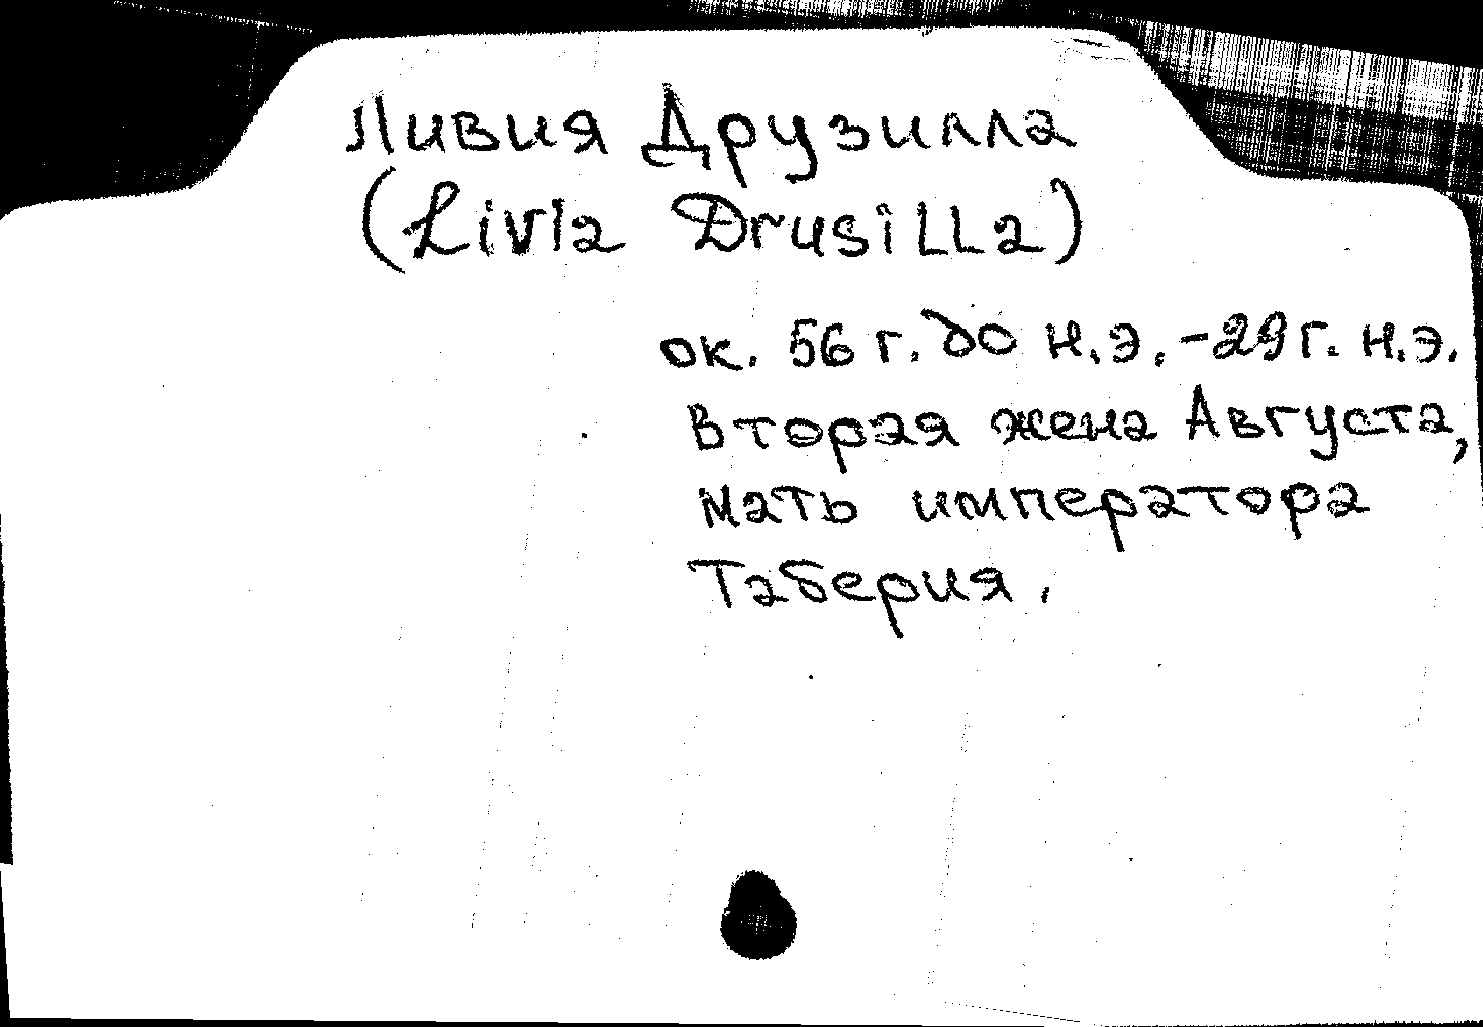 Ливия Друзилла
(Livia Drusilla)
ок. 56 г. до н.э. - 29 г. н.э.
Вторая жена Августа,
мать императора
Таберия.